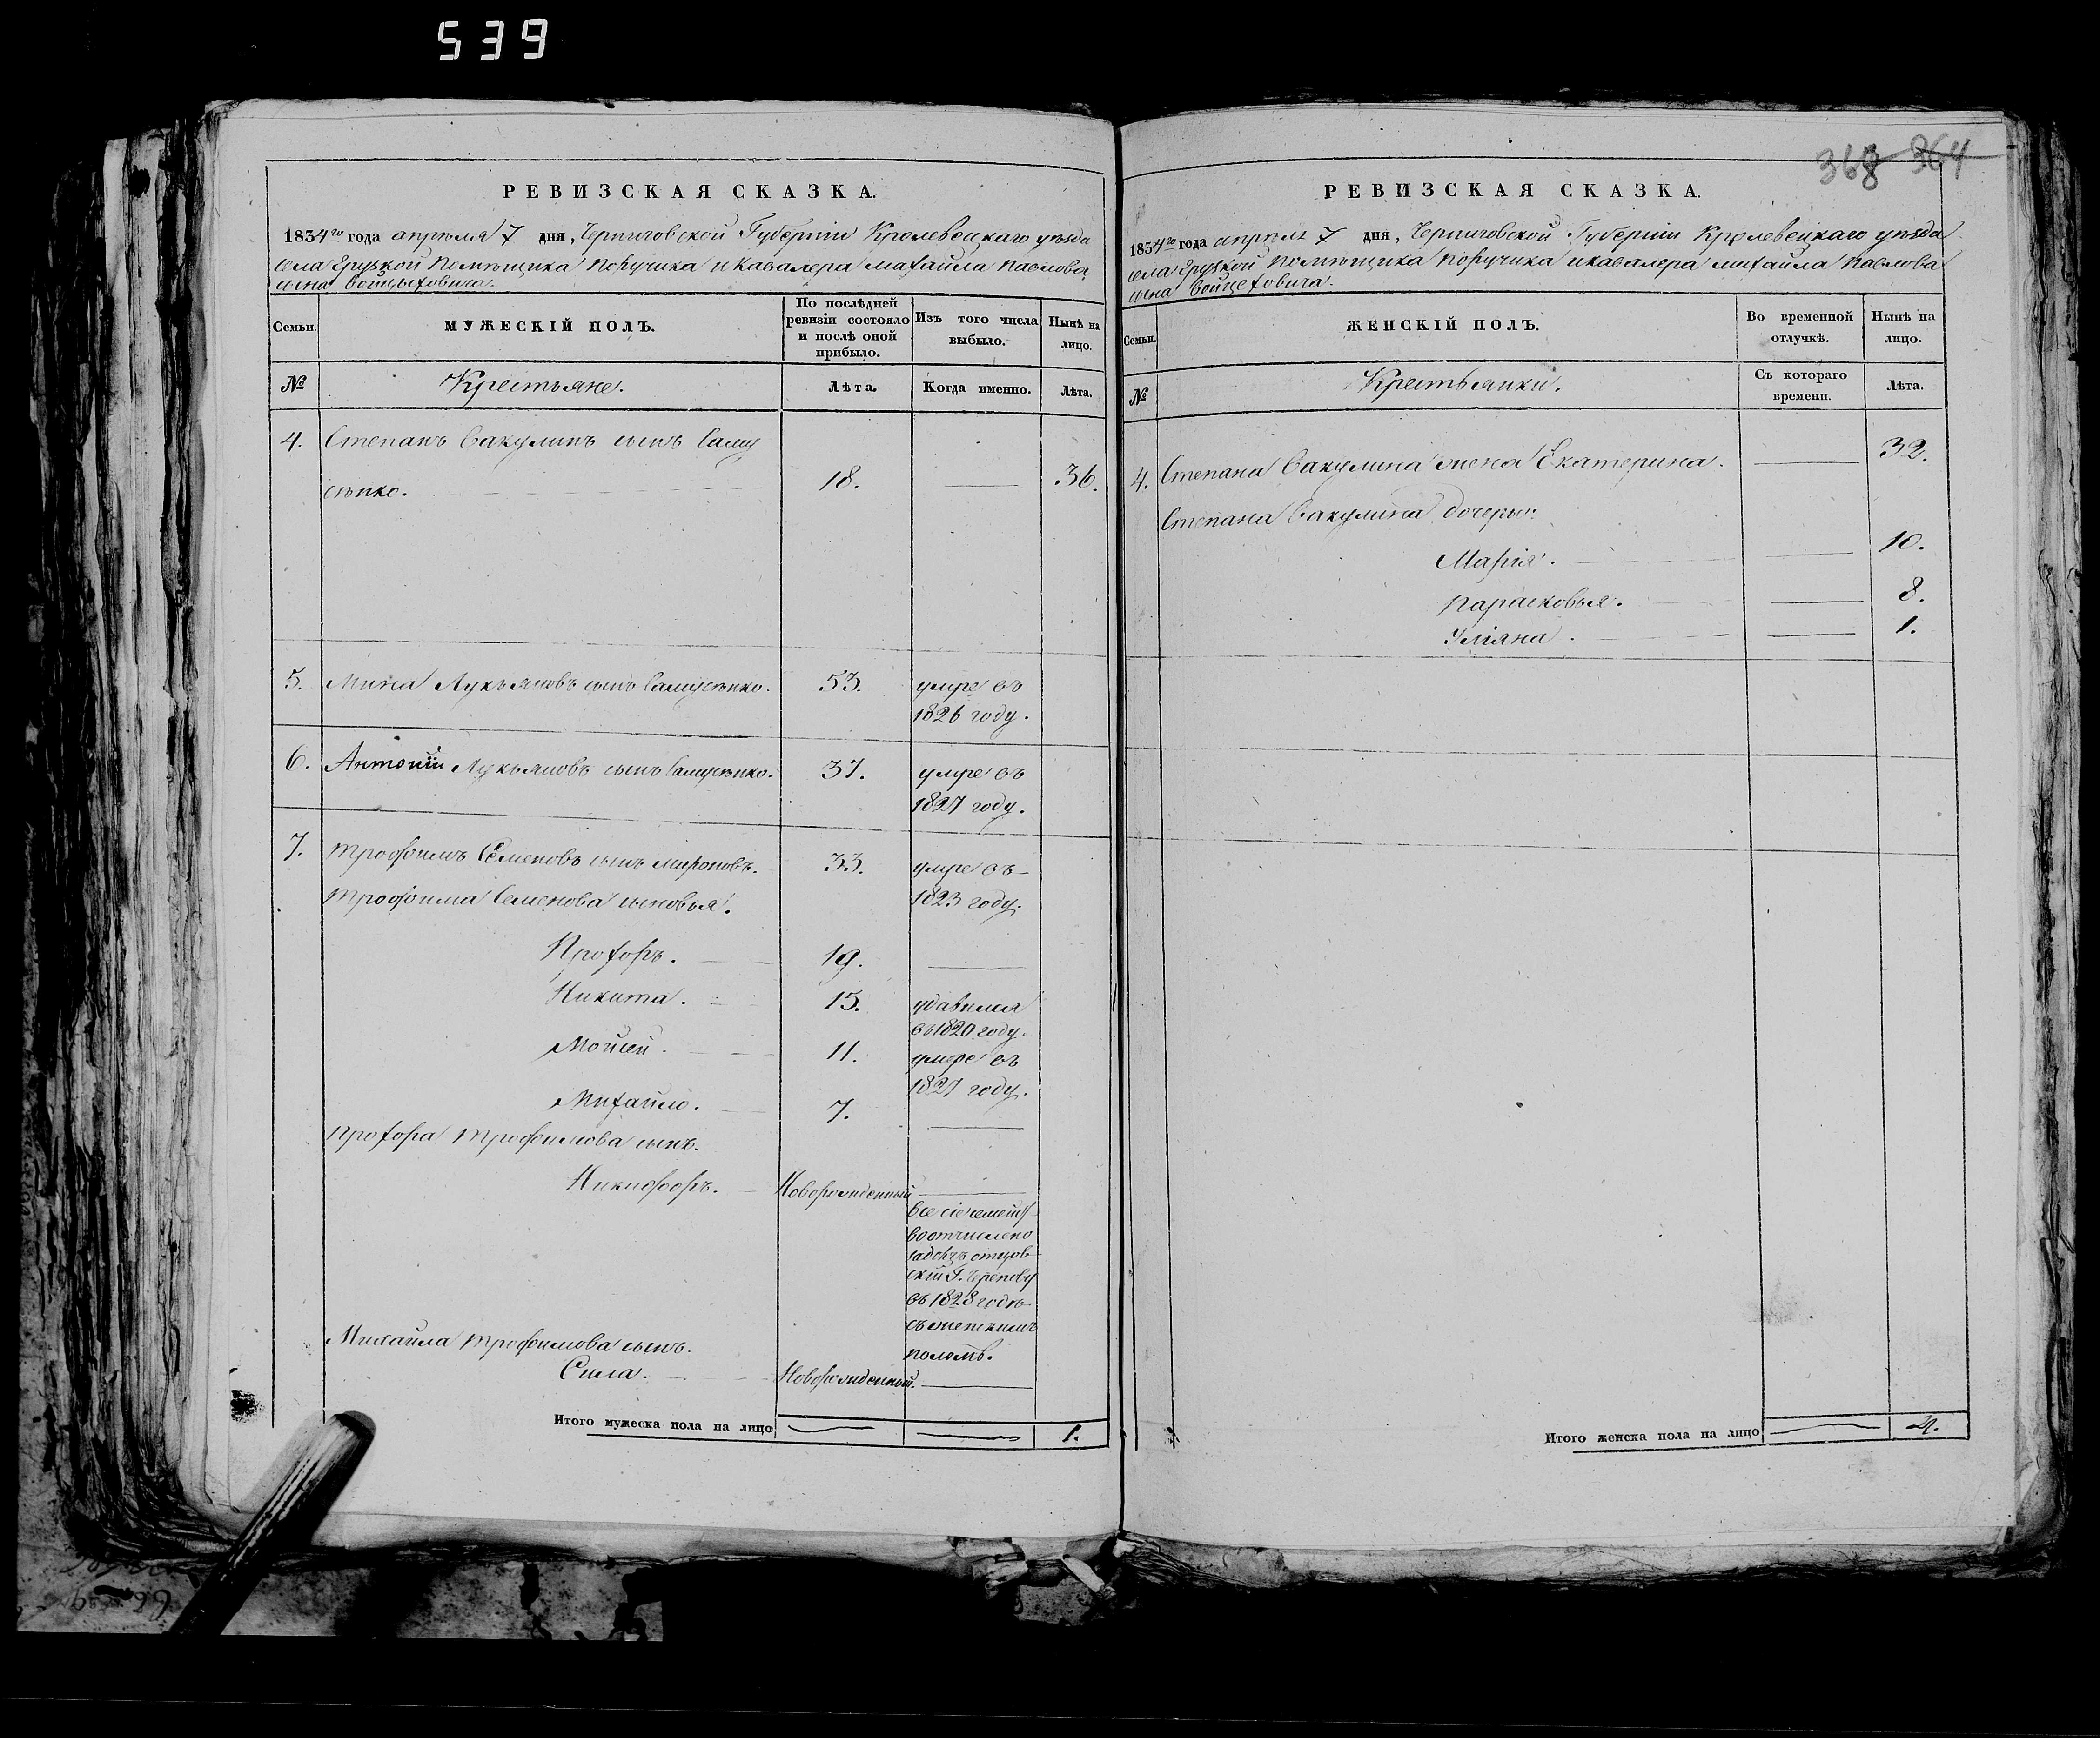 539
РЕВИЗСКАЯ СКАЗКА.
1834го года апреля 7 дня, Черниговской Губерніи Кролевецкаго уезда
села Грузкой Помѣщика Поручика и Кавалера Михайла Павлова
сына Войцеховича.
Семьи.
МУЖЕСКІЙ ПОЛЪ.
По послѣдней ревизіи состояло и послѣ оной прибыло.
Изъ того числа выбыло.
Нынѣ на лицо.
№
Крестьяне.
Лѣта.
Когда именно.
Лѣта.
4. Степанъ Вакулинъ сынъ Саму
сѣнко. 18. 36.
5. Мина Лукьяновъ сынъ Самусѣнко. 53. умре въ
1826 году.
6. Антоній Лукьяновъ сынъ Самусѣнко. 37. умре въ
1827 году.
7. Трофимъ Семеновъ сынъ Мироновъ. 33. умре въ
1823 году.
Трофима Семенова сыновья.
Прохоръ. 19.
Никита. 15. удавился
въ 1820 году.
Мойсей. 11. умре въ
1827 году.
Михайло. 7.
Прохора Трофимова сынъ.
Никифоръ. Новорожденный
все сіе семейст
во отчислено
отцов
скій Г.
въ 1828 годѣ
съ женскимъ
поломъ.
Михаила Трофимова сынъ.
Сила. Новорожденный.
Итого мужеска пола на лицо 1.
368 364
РЕВИЗСКАЯ СКАЗКА.
1834го года апрѣля 7 дня, Черниговской Губерніи Кролевецкаго уезда
села Грузкой Помѣщика Поручика и кавалера Михайла Павлова
сына Войцеховича.
Семьи.
ЖЕНСКІЙ ПОЛЪ.
Во временной отлучкѣ.
Нынѣ на лицо.
№
Крестьянки.
Съ котораго времени.
Лѣта.
4. Степана Вакулина жена Екатерина. 32.
Степана Вакулина дочери:
Марія. 10.
Парасковья. 8.
Уліяна. 1.
Итого женска пола на лицо 4.